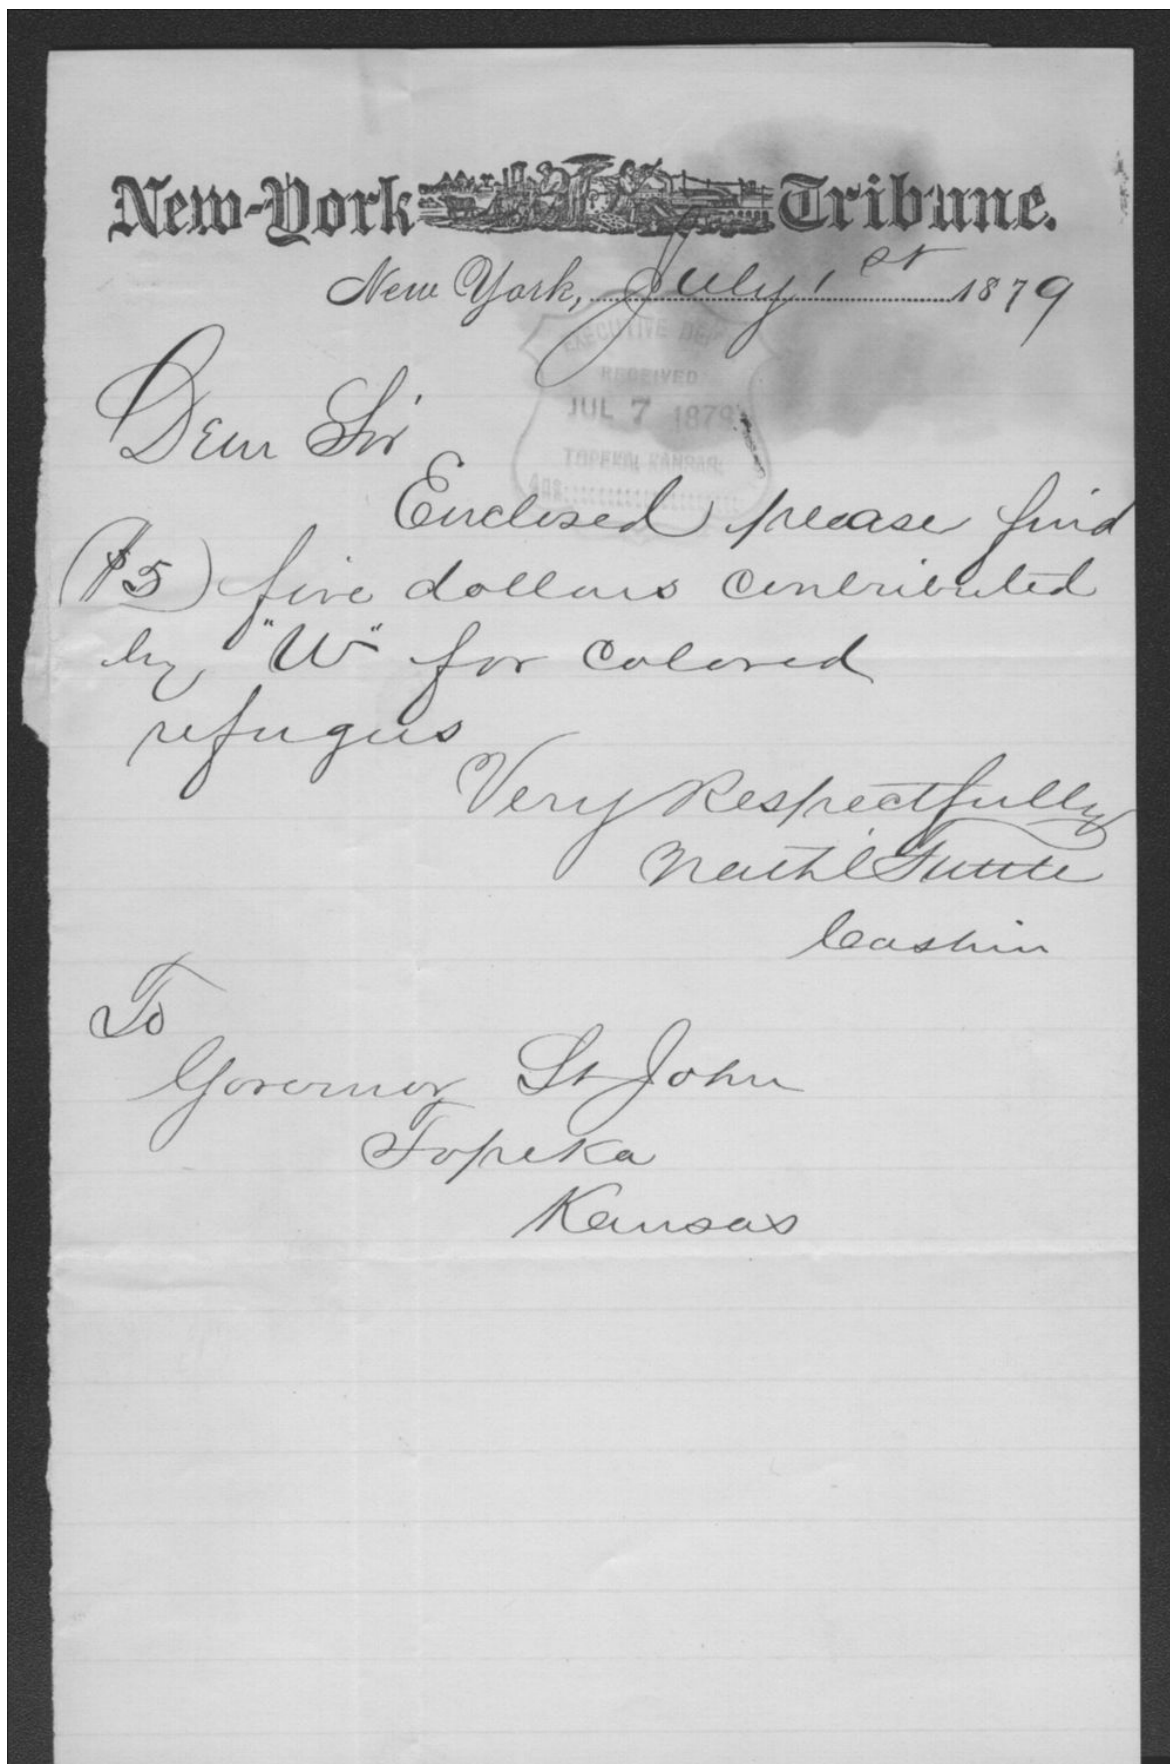 New-York Tribune.
New York, July 1st 1879
EXECUTIVE DEPT
RECEIVED
JUL 7 1879
TOPEKA, KANSAS.
Dear Sir
Enclosed please find
($5) five dollars contributed
by "W" for colored
refugees
Very Respectfully
Nath'l Tuttle
Cashier
To
Governor St John
Topeka
Kansas